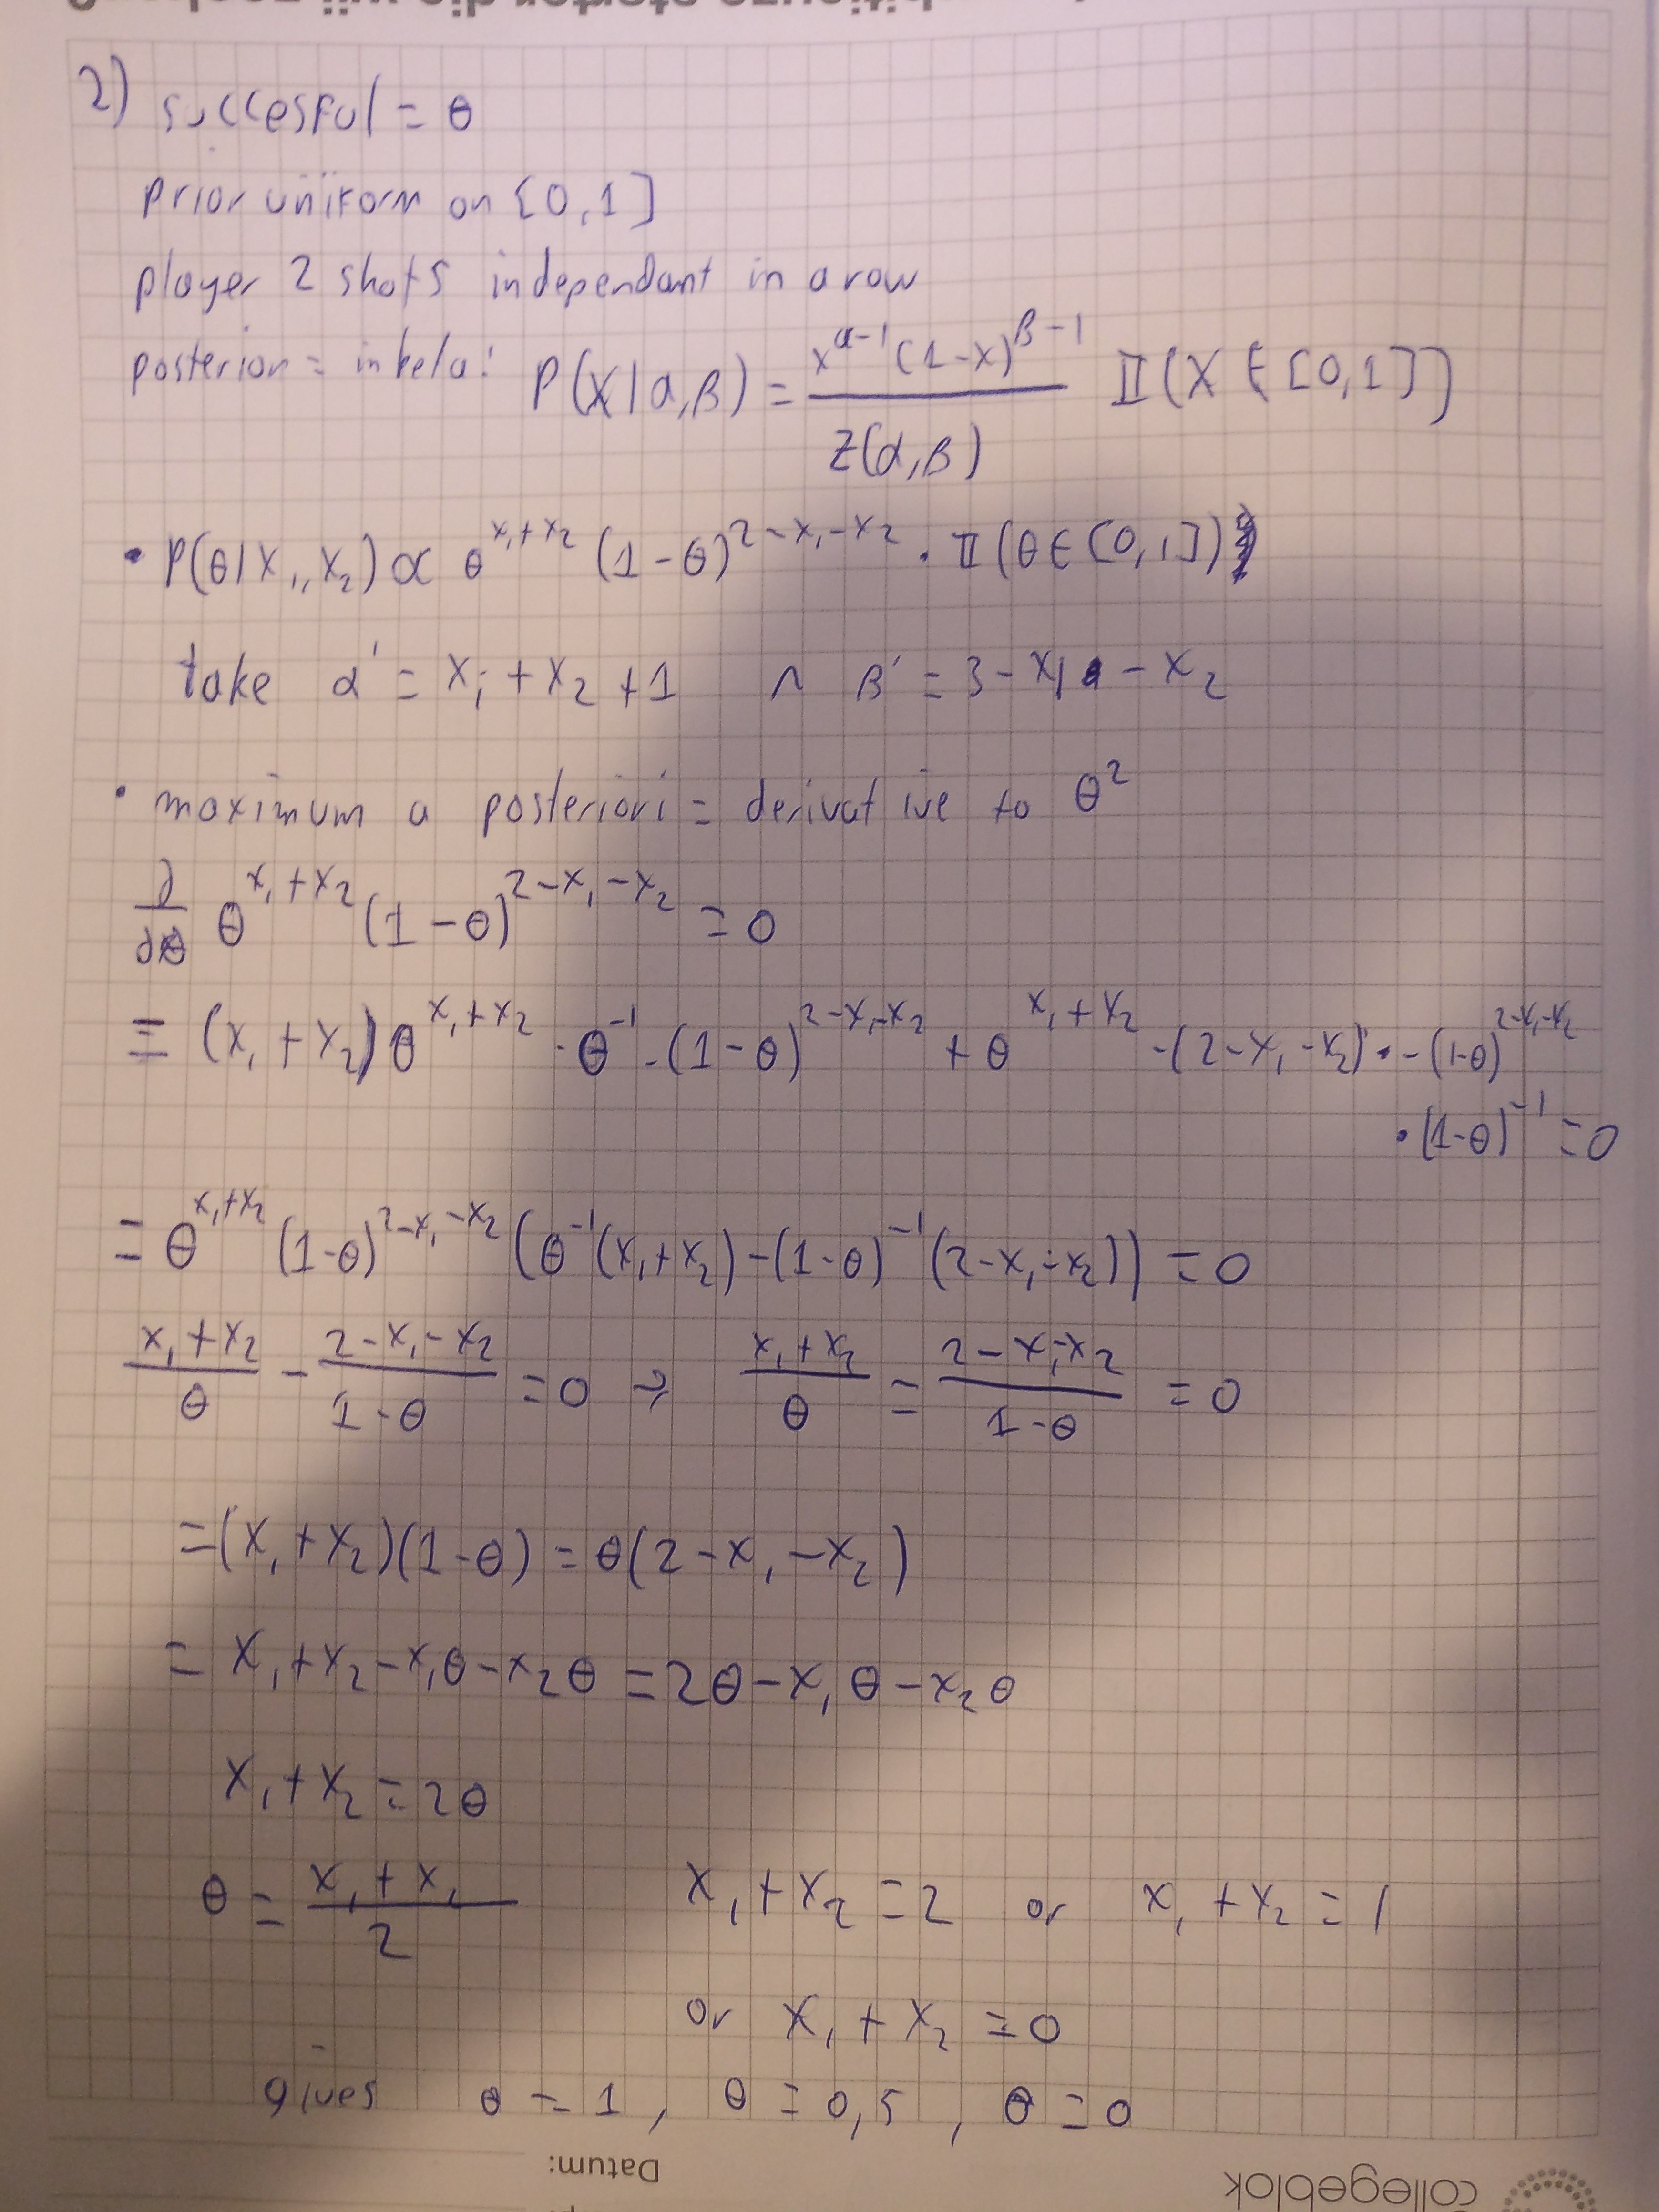 2) succesful = θ
prior uniform on [0,1]
player 2 shots independant in a row
posterior = in beta: P(X|α,β) = x^{α-1}(1-x)^{β-1} / Z(α,β) 𝕀(X ∈ [0,1])
• P(θ|X₁,X₂) ∝ θ^{x₁+x₂} (1-θ)^{2-x₁-x₂} · 𝕀(θ∈[0,1])
take α' = x₁+x₂+1 ∧ β' = 3-x₁-x₂
• maximum a posteriori = derivative to θ²
∂/∂θ θ^{x₁+x₂} (1-θ)^{2-x₁-x₂} = 0
≡ (x₁+x₂)θ^{x₁+x₂} · θ^{-1} · (1-θ)^{2-x₁-x₂} + θ^{x₁+x₂} · (2-x₁-x₂) · -(1-θ)^{2-x₁-x₂}
· (1-θ)^{-1} = 0
= θ^{x₁+x₂} (1-θ)^{2-x₁-x₂} (θ^{-1}(x₁+x₂) - (1-θ)^{-1} (2-x₁-x₂)) = 0
(x₁+x₂)/θ - (2-x₁-x₂)/(1-θ) = 0 → (x₁+x₂)/θ = (2-x₁-x₂)/(1-θ) = 0
= (x₁+x₂)(1-θ) = θ(2-x₁-x₂)
= x₁+x₂-x₁θ-x₂θ = 2θ-x₁θ-x₂θ
x₁+x₂ = 2θ
θ = (x₁+x₂)/2 x₁+x₂ = 2 or x₁+x₂ = 1
or x₁+x₂ = 0
gives θ = 1, θ = 0,5, θ = 0
Datum:
collegeblok